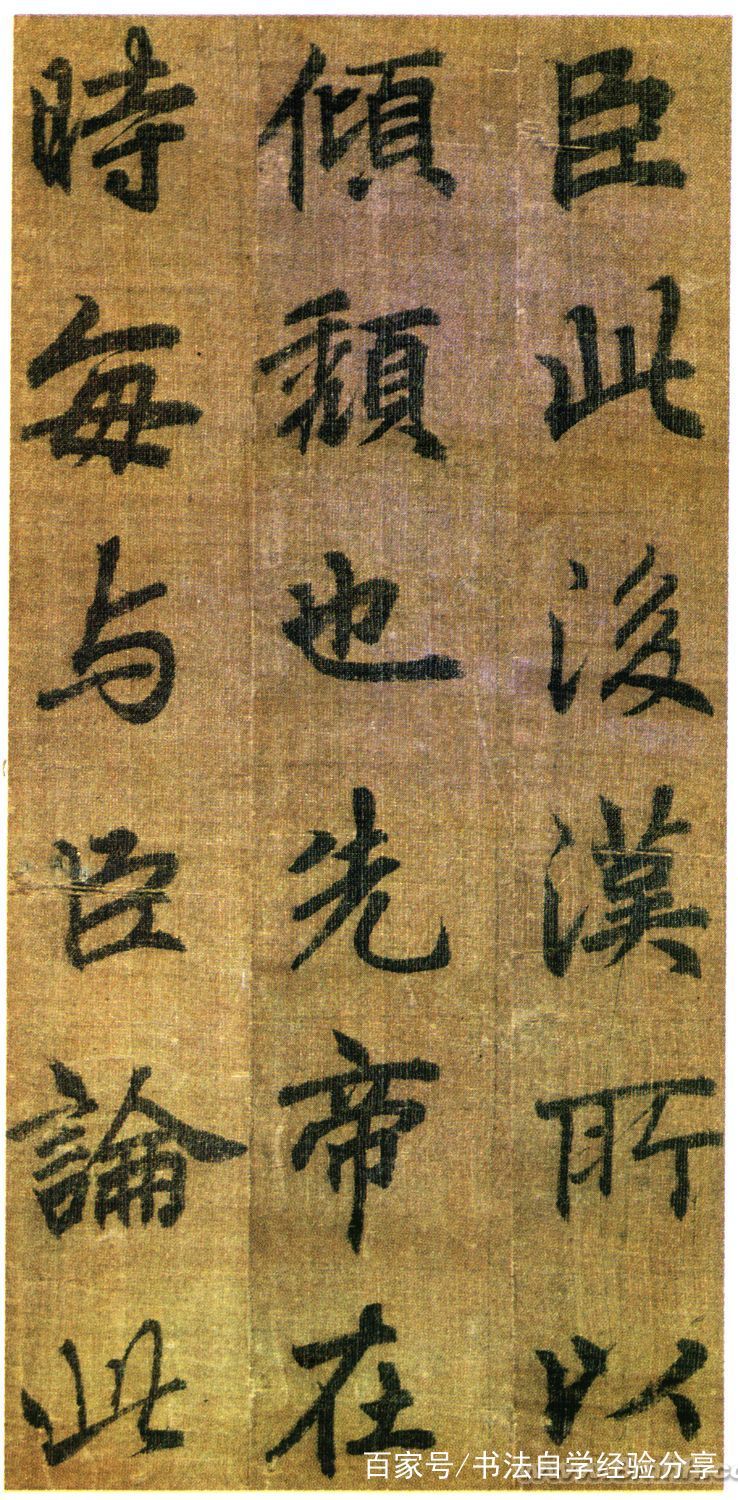 臣此後漢所以
傾頹也先帝在
時每与臣論此
百家号/书法自学经验分享